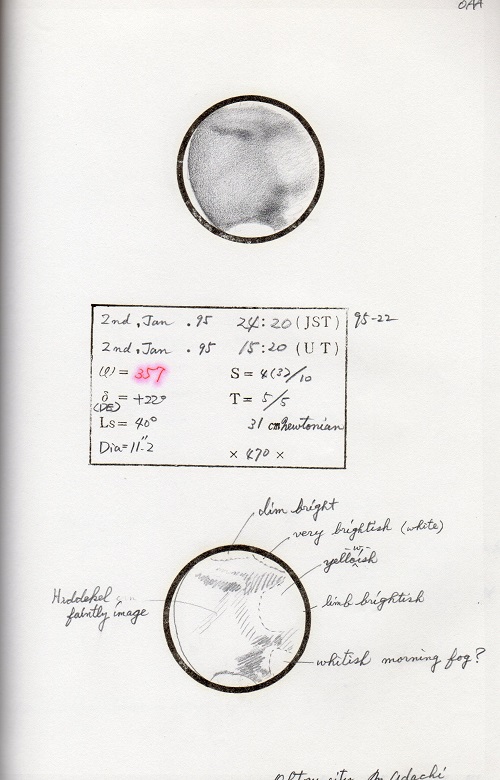 OAA
2nd, Jan . 95 24:20 (JST) 95-22
2nd, Jan . 95 15:20 (U T)
ω = 357 S = 4(3)/10
δ = +22° T = 5/5
(DE)
Ls = 40° 31 cm newtonian
Dia = 11".2
× 470 ×
dim bright
very brightish (white)
yellowish
Hiddekel
faintly image
limb brightish
whitish morning fog?
Adachi